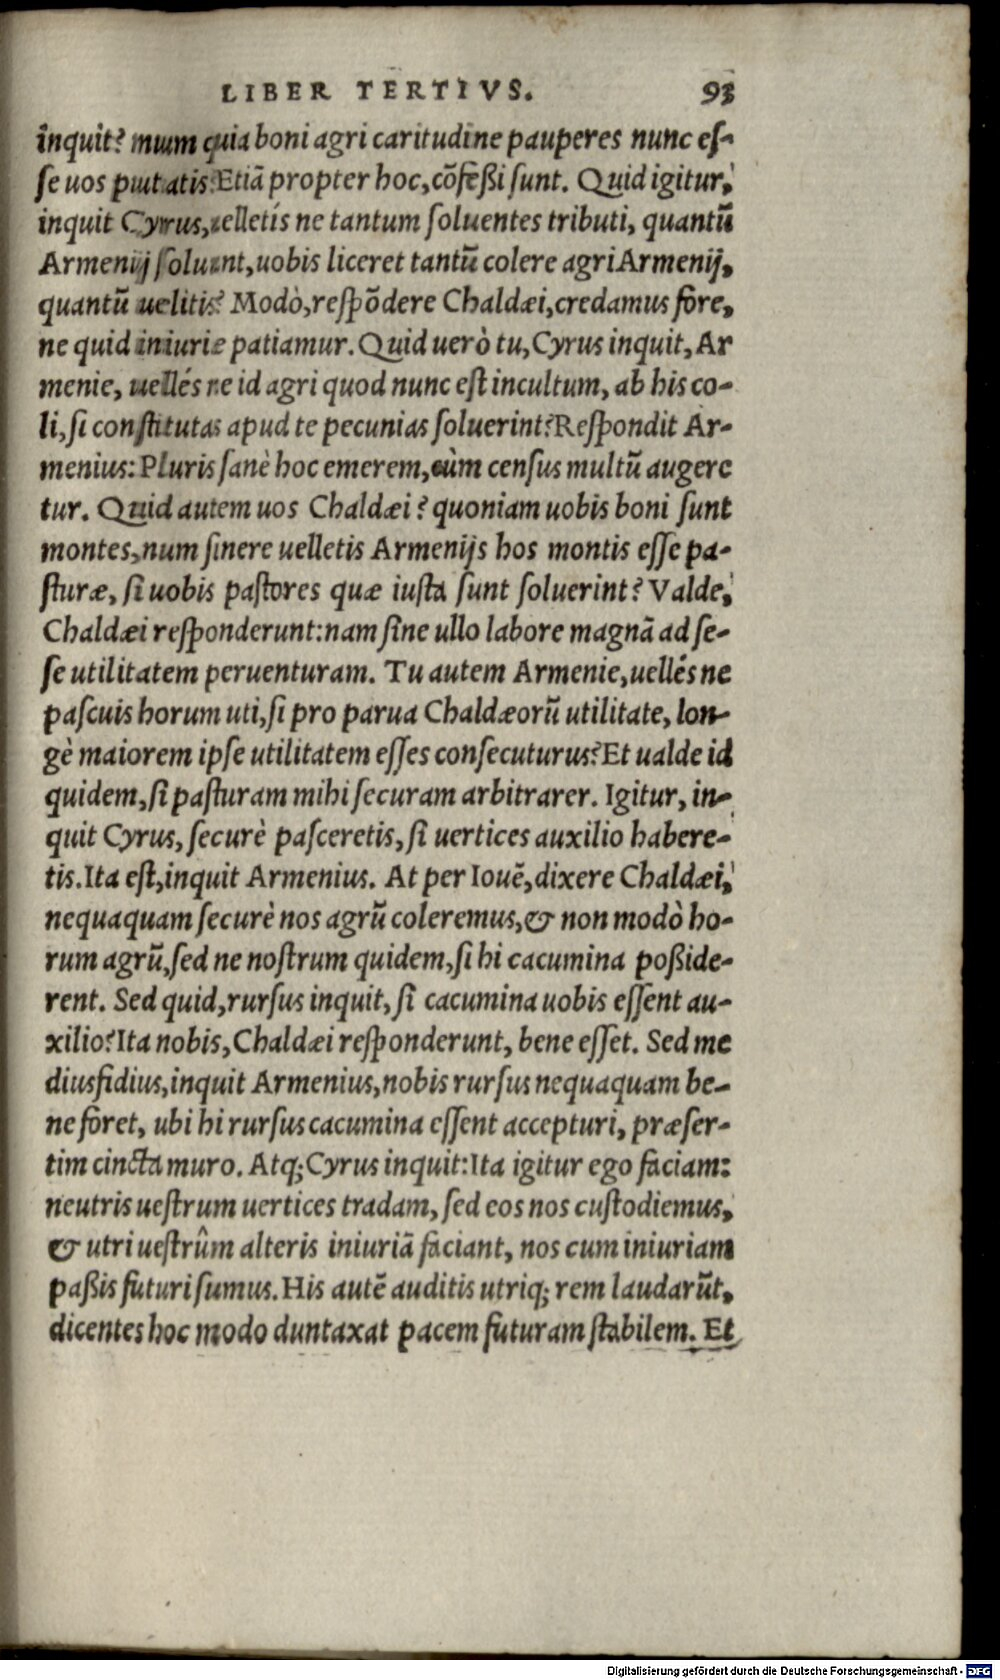 LIBER TERTIVS. 93
inquit? num quia boni agri caritudine pauperes nunc es-
se uos putatis? Etiā propter hoc, cōfeßi sunt. Quid igitur,
inquit Cyrus, uelletis ne tantum soluentes tributi, quantū
Armenij soluunt, uobis liceret tantū colere agri Armenij,
quantū uelitis? Modò, respōdere Chaldæi, credamus fore,
ne quid iniuriæ patiamur. Quid uerò tu, Cyrus inquit, Ar
menie, uellés ne id agri quod nunc est incultum, ab his co-
li, si constitutas apud te pecunias soluerint? Respondit Ar-
menius: Pluris sanè hoc emerem, cùm census multū augere
tur. Quid autem uos Chaldæi? quoniam uobis boni sunt
montes, num sinere uelletis Armenijs hos montis esse pa-
sturæ, si uobis pastores quæ iusta sunt soluerint? Valde,
Chaldæi responderunt: nam sine ullo labore magnā ad se-
se utilitatem peruenturam. Tu autem Armenie, uellés ne
pascuis horum uti, si pro parua Chaldæorū utilitate, lon-
gè maiorem ipse utilitatem esses consecuturus? Et ualde id
quidem, si pasturam mihi securam arbitrarer. Igitur, in-
quit Cyrus, securè pasceretis, si uertices auxilio habere-
tis. Ita est, inquit Armenius. At per Iouē, dixere Chaldæi,
nequaquam securè nos agrū coleremus, & non modò ho-
rum agrū, sed ne nostrum quidem, si hi cacumina poßide-
rent. Sed quid, rursus inquit, si cacumina uobis essent au-
xilio? Ita nobis, Chaldæi responderunt, bene esset. Sed me
diusfidius, inquit Armenius, nobis rursus nequaquam be-
ne foret, ubi hi rursus cacumina essent accepturi, præser-
tim cincta muro. Atq; Cyrus inquit: Ita igitur ego faciam:
neutris uestrum uertices tradam, sed eos nos custodiemus,
& utri uestrûm alteris iniuriā faciant, nos cum iniuriam
paßis futuri sumus. His autē auditis utriq; rem laudarūt,
dicentes hoc modo duntaxat pacem futuram stabilem. Et
Digitalisierung gefördert durch die Deutsche Forschungsgemeinschaft - DFG